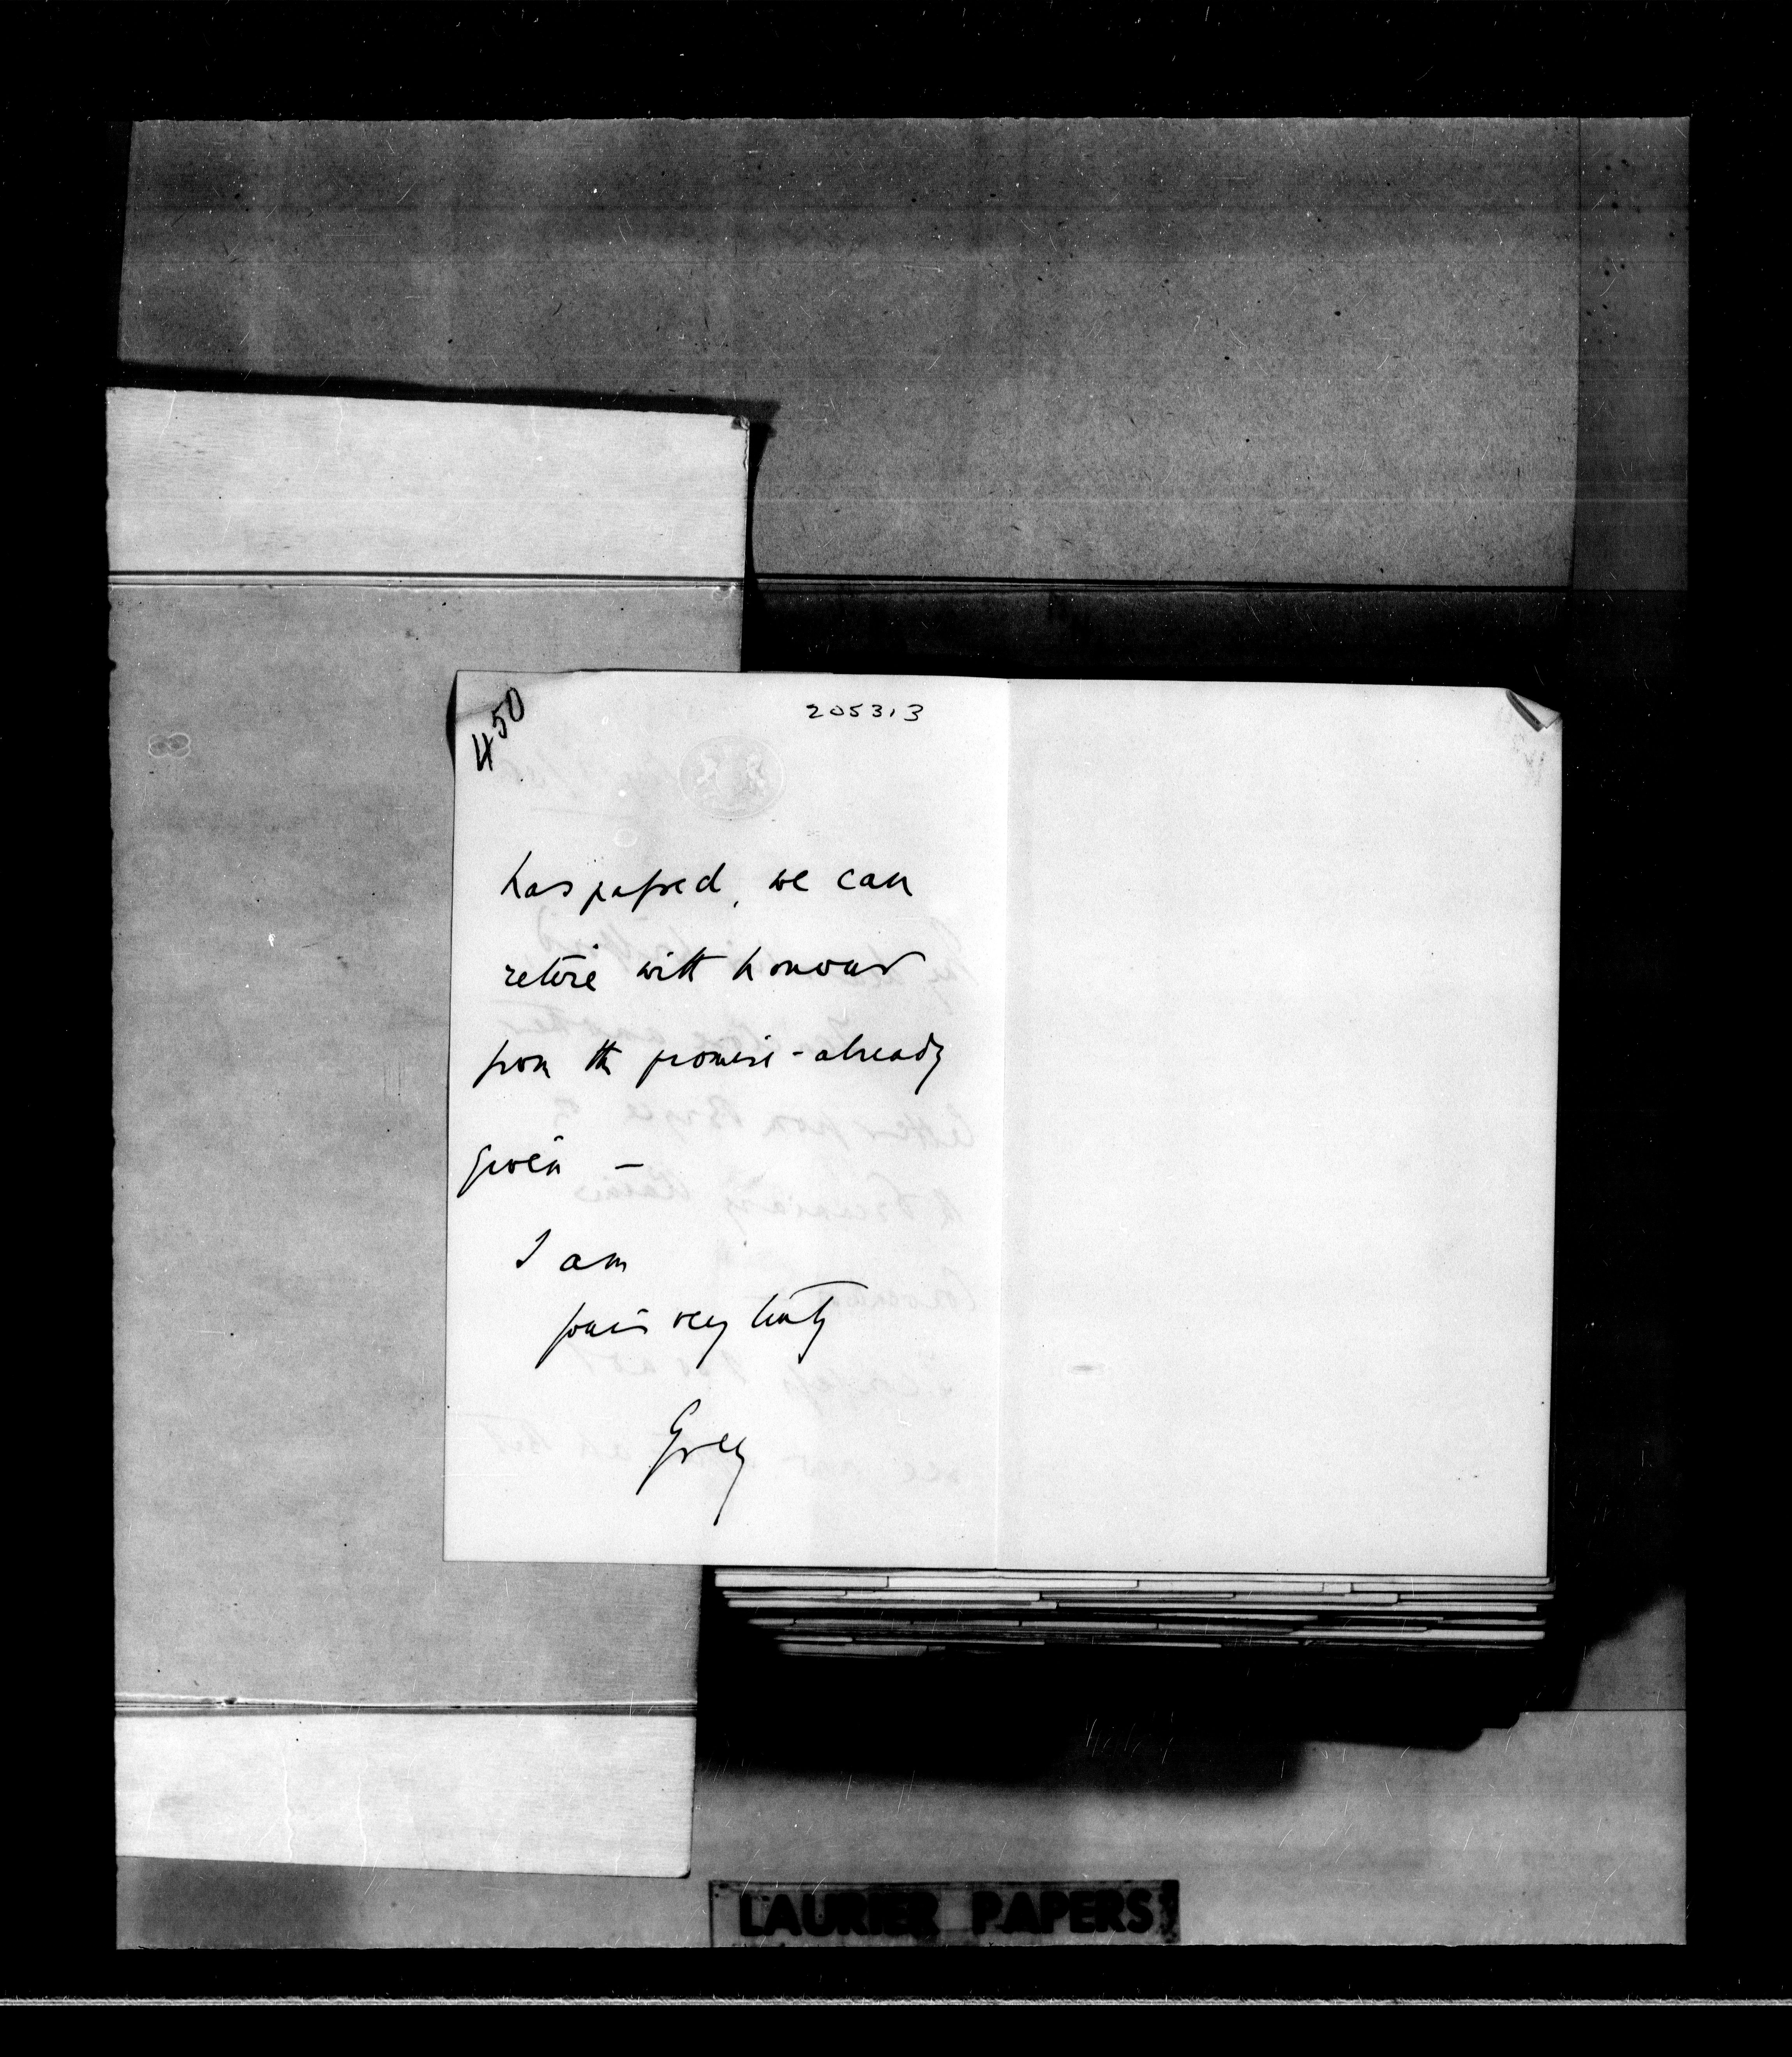 450
205313
has passed, we can
retire with honour
from the promise - already
given -
I am
yours very truly
Grey
LAURIER PAPERS